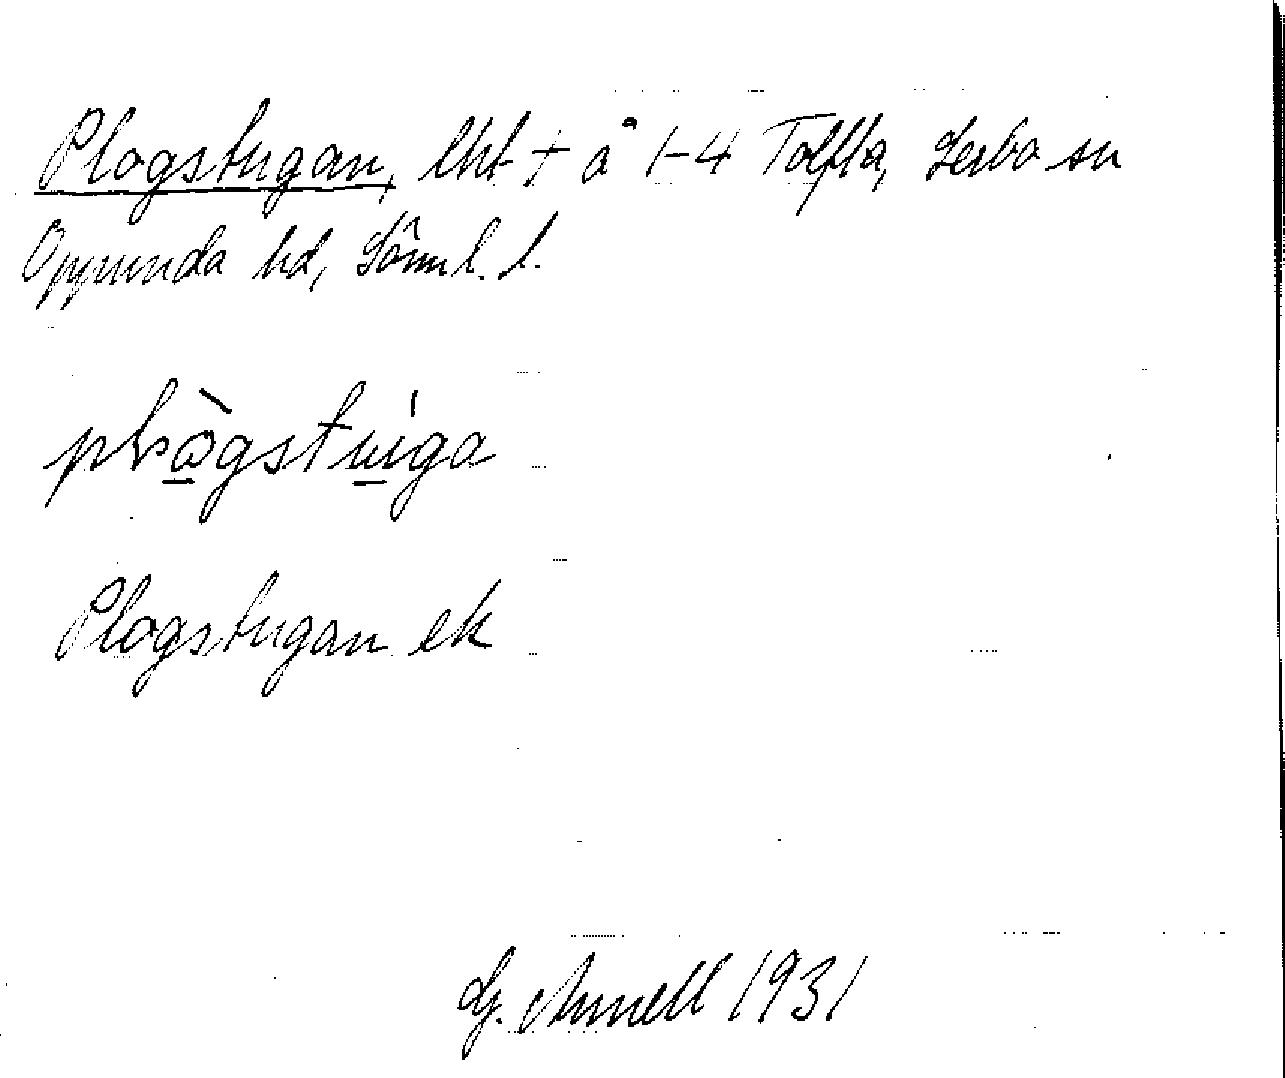 Plogstugan, lht † å 1-4 Tolfta, Lerbo sn
Oppunda hd, Sörml. l.
plògstúga
Plogstugan ek
G. Arnell 1931